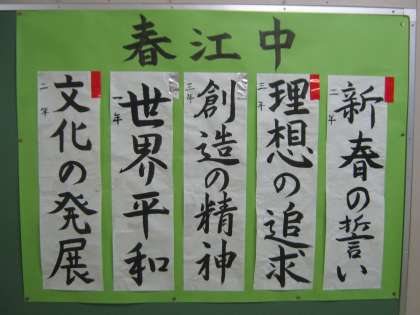 春江中
新春の誓い
二年
理想の追求
三年
創造の精神
三年
世界平和
一年
文化の発展
二年